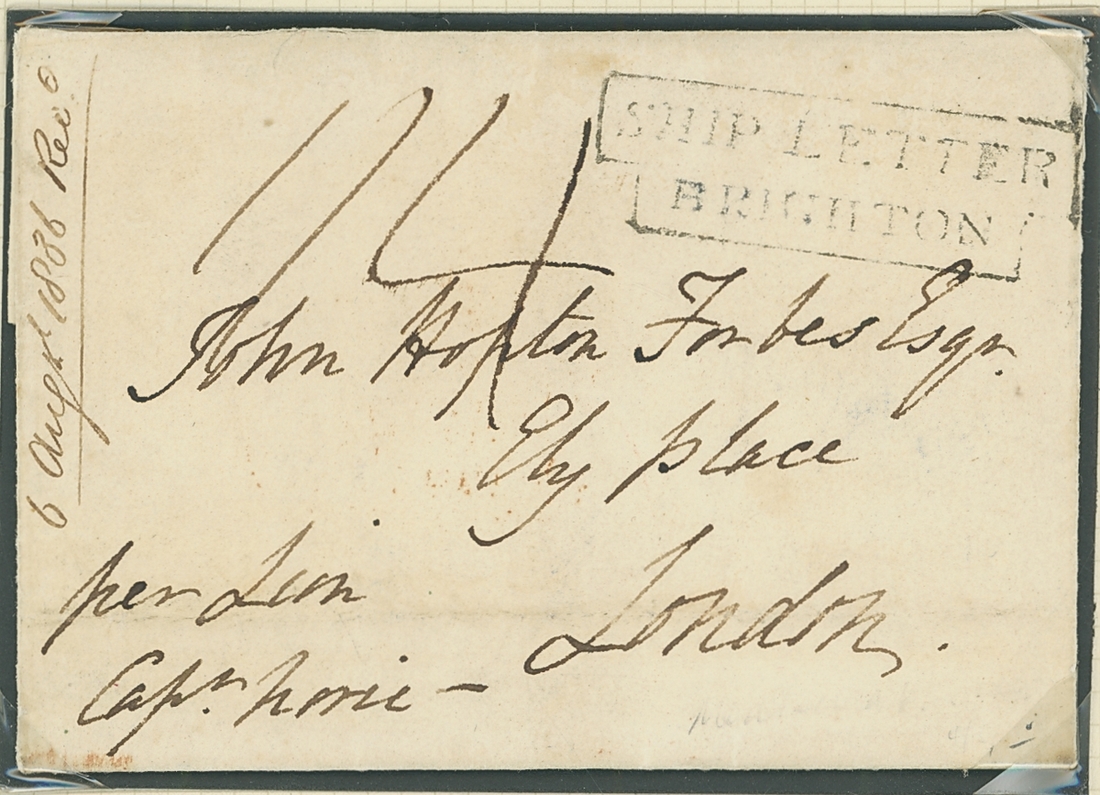 6 Augst 1836 Recd
SHIP LETTER
BRIGHTON
14
John Hopton Forbes Esqr.
Ely place
London.
per Lion
Captn.